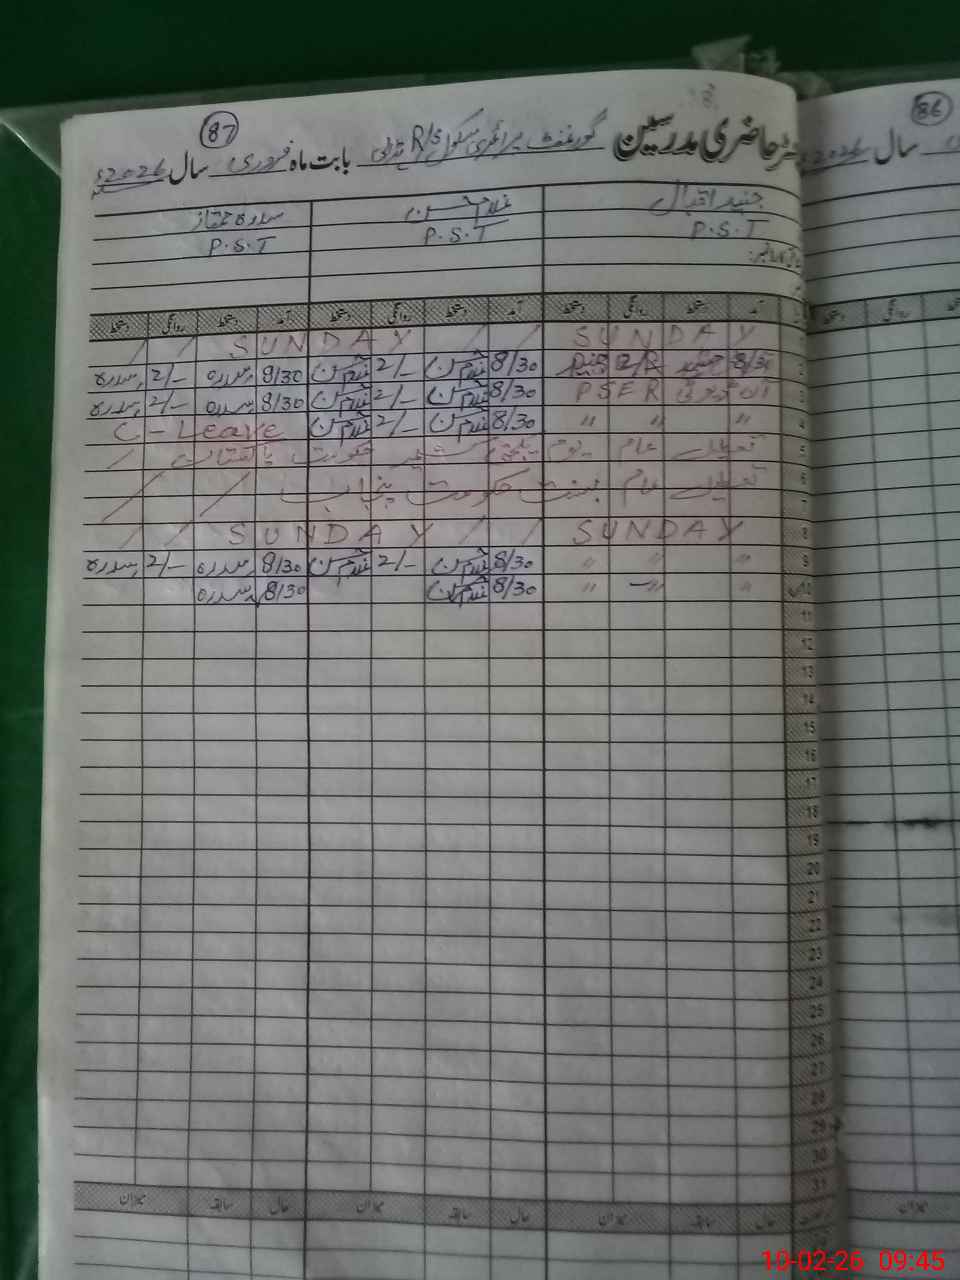 87
86
رجسٹر حاضری مدرسین گورنمنٹ پرائمری سکول R/S بابت ماہ فروری سال 2026ء
سال 2026ء
جنید اقبال غلام حسن سدرہ ممتاز
P.S.T P.S.T P.S.T
آمد دستخط روانگی دستخط آمد دستخط روانگی دستخط آمد دستخط روانگی دستخط
1 SUNDAY / / SUNDAY / /
2 8/30 جنید جنید 8/30 غلام حسن 2/- غلام حسن 8/30 سدرہ 2/- سدرہ
3 PSER 8/30 غلام حسن 2/- غلام حسن 8/30 سدرہ 2/- سدرہ
4 〃 〃 〃 8/30 غلام حسن 2/- غلام حسن C-Leave
5 تعطیل عام یوم یکجہتی کشمیر حکومت پاکستان /
6 تعطیل عام بسنت حکومت پنجاب / /
7
8 SUNDAY / / SUNDAY / /
9 〃 〃 〃 8/30 غلام حسن 2/- غلام حسن 8/30 سدرہ 2/- سدرہ
10 〃 〃 〃 8/30 غلام حسن 8/30 سدرہ
11
12
13
14
15
16
17
18
19
20
21
22
23
24
25
26
27
28
29
30
31
حال سابقہ میزان حال سابقہ میزان حال سابقہ میزان
میزان
10-02-26 09:45